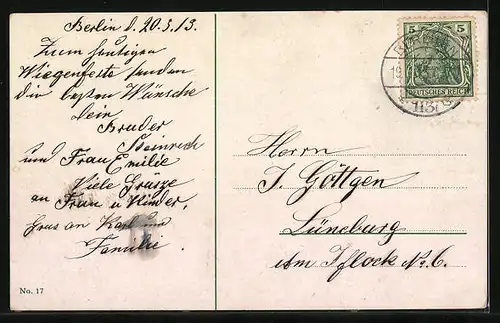 Berlin d. 20.3.13.
Zum heutigen
Wiegenfeste senden
die besten Wünsche
Dein
Bruder
Heinrich
und Frau Emilie
Viele Grüsze
an Frau u Kinder,
Grus an Karl und
Familie.
No. 17
5 5
DEUTSCHES REICH
Herrn
J. Göttgen
Lüneburg
Am Iflock No. 6.